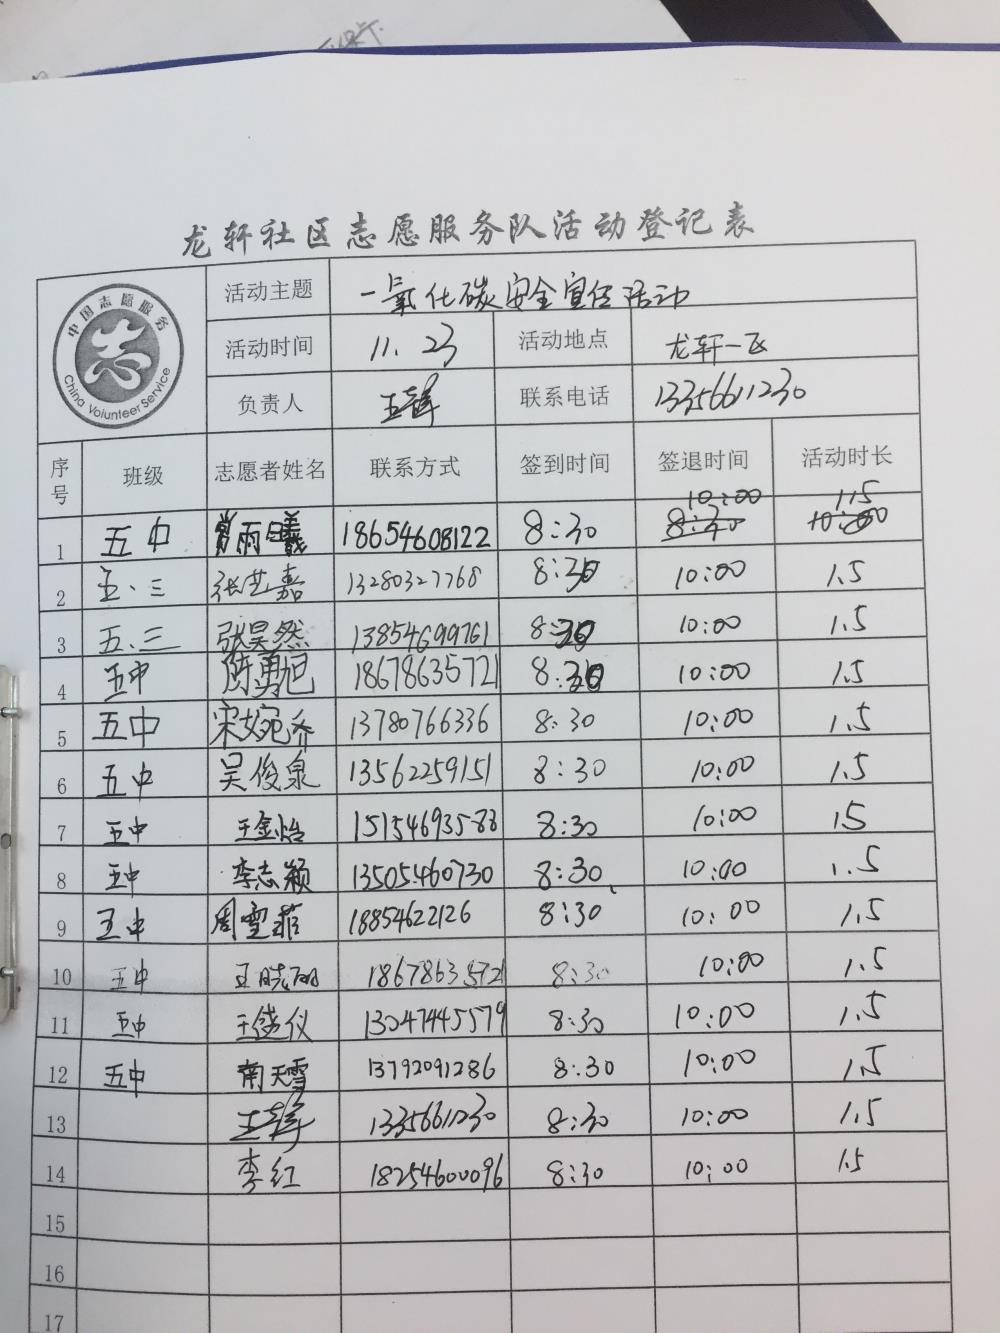 龙轩社区志愿服务队活动登记表
中国志愿服务
志
China Volunteer Service
活动主题 一氧化碳安全宣传活动
活动时间 11.23 活动地点 龙轩一区
负责人 联系电话 13356611230
序号 班级 志愿者姓名 联系方式 签到时间 签退时间 活动时长
1 五中 雨曦 18654608122 8:30 10:00 1.5
2 五.三 张艺嘉 13280327768 8:30 10:00 1.5
3 五.三 张昊然 13854699761 8:30 10:00 1.5
4 五中 陈勇旭 18678635721 8:30 10:00 1.5
5 五中 宋婉乔 13780766336 8:30 10:00 1.5
6 五中 吴俊泉 13562259151 8:30 10:00 1.5
7 五中 王金怡 15154693588 8:30 10:00 1.5
8 五中 李志颖 13505460730 8:30 10:00 1.5
9 五中 周雪菲 18854622126 8:30 10:00 1.5
10 五中 王晓 18678635721 8:30 10:00 1.5
11 五中 王仪 13047445579 8:30 10:00 1.5
12 五中 南天雪 13792091286 8:30 10:00 1.5
13 13356611230 8:30 10:00 1.5
14 李红 18254600096 8:30 10:00 1.5
15
16
17